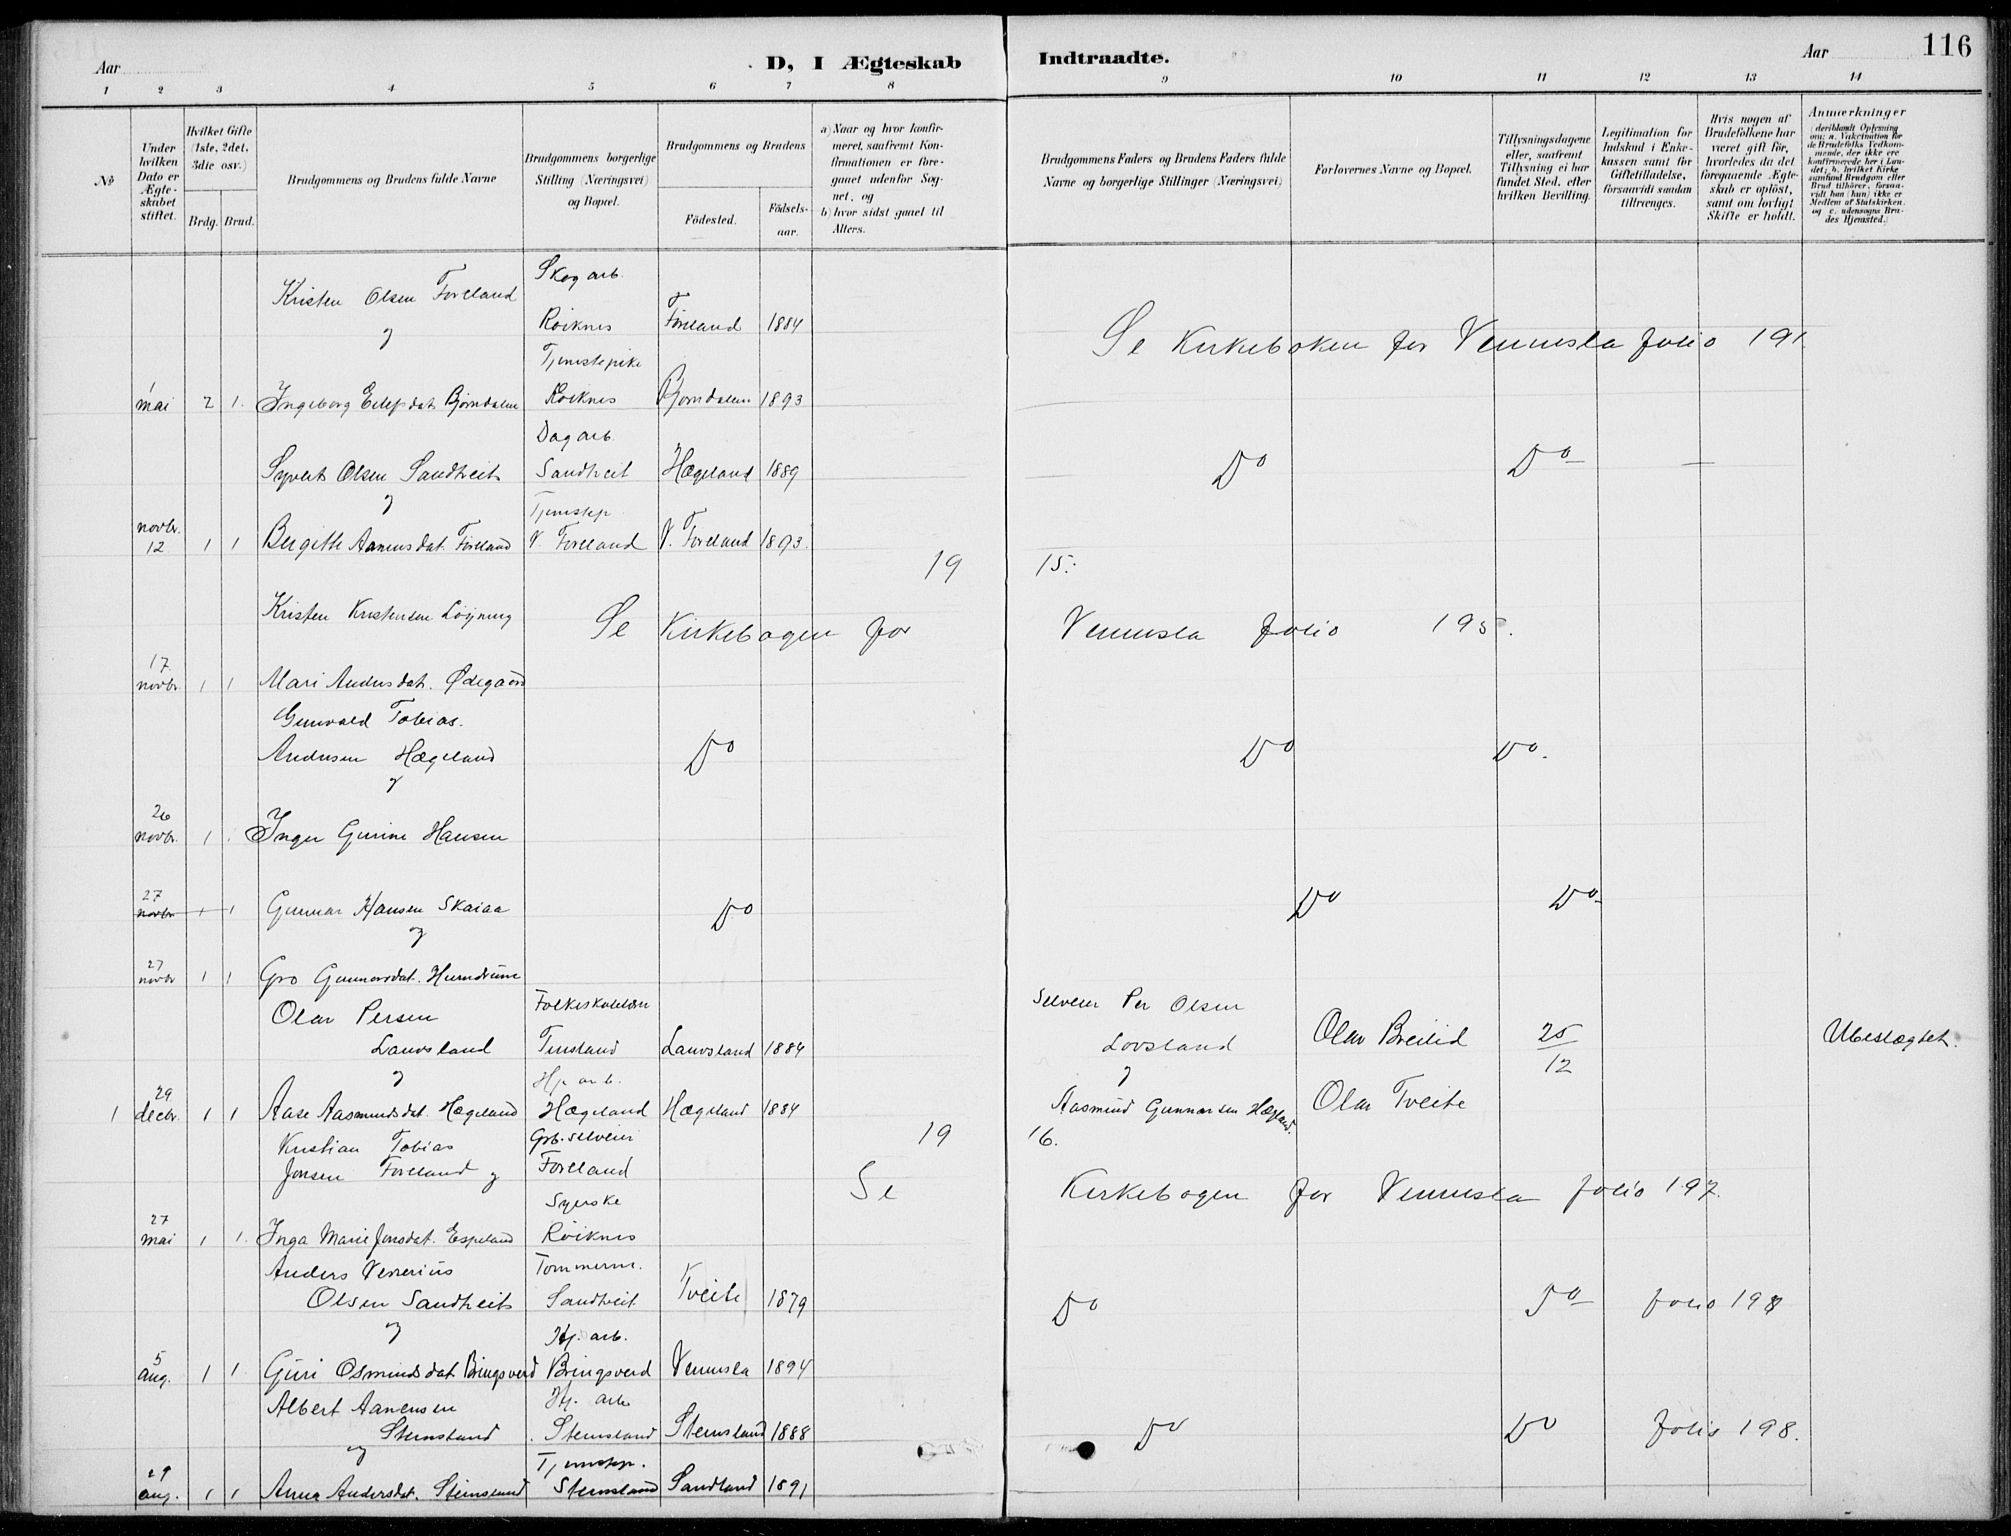 116
Aar
D, I Ægteskab Indtraadte.
Aar
1 2 3 4 5 6 7 8 9 10 11 12 13 14
No
Under hvilken Dato er Ægteskabet stiftet.
Hvilket Gifte (1ste, 2det, 3die osv.)
Brdg. Brud.
Brudgommens og Brudens fulde Navne
Brudgommens borgerlige Stilling (Næringsvei) og Bopæl.
Brudgommens og Brudens
Fødested. Fødselsaar.
a) Naar og hvor konfirmeret, saafremt Konfirmationen er foregaaet udenfor Sognet, og
b) hvor sidst gaaet til Alters.
Brudgommens Faders og Brudens Faders fulde Navne og borgerlige Stillinger (Næringsvei)
Forlovernes Navne og Bopæl.
Tillysningsdagene eller, saafremt Tillysning ei har fundet Sted, efter hvilken Bevilling.
Legitimation for Indskud i Enkekassen samt for Giftetilladelse, forsaavidt saadan tiltrænges.
Hvis nogen af Brudefolkene har været gift før, hvorledes da det foregaaende Ægteskab er opløst, samt om lovligt Skifte er holdt.
Anmerkninger (deriblandt Oplysning om: a. Vakcination for de Brudefolks Vedkommende, der ikke ere konfirmerede her i Landet; b. hvilket Kirkesamfund Brudgom eller Brud tilhører, forsaavidt han (hun) ikke er Medlem af Statskirken, og c. udensogns Brudes Hjemsted.)
Skogarb.
Kristen Olsen Foreland
Røiknes Føreland 1884
Se Kirkeboken for Vennesla folio 191
Tjenstepike
1 mai 2 1. Ingeborg Eilefsdat. Bjørndalen Røiknes Bjørndalen 1893
Dagarb.
Syvert Olsen Sandheit Sandheit Hægeland 1889 Do Do
Tjenstep.
novbr. 12 1 1 Bergitte Aanensdat. Føreland V. Foreland V. Foreland 1893.
19 15.
Kristen Kristensen Løyning Se Kirkebogen for Vennesla folio 195.
17 novbr. 1 1 Mari Andersdat. Ødegaard
Gunvald Tobias.
Andersen Hægeland Do Do Do.
26 novbr. 1 Inger Gurine Hansen
27 novbr. 1 1 Gunnar Hansen Skaiaa Do Do Do
27 novbr 1 1 Gro Gunnarsdat.
Olav Persen Selveier Per Olsen
Lauvsland Lauvsland 1884 Lovsland Olav Breilid 25/12 Ubeslægtet.
Hj. arb.
1 29 decbr. 1 1 Aase Aasmundsdat. Hægeland Hægeland Hægeland 1884 Aasmund Gunnarsen Hægeland. Olav Tveite
Kristian Tobias Grb. selveier 19 16.
Jonsen Foreland Foreland
Se Kirkebogen for Vennesla folio 197.
Syerske
27 mai 1 1. Inga Marie Jonsdat. Espeland Røiknes
Anders Tommerm.
Olsen Sandheit Sandheit Tveite 1879 Do Do folio 198
Hj. arb.
5 aug. 1 1 Guri Osmundsdat Bringsverd Bringsverd Vennesla 1894
Albert Aanensen Hj. arb
Stensland Stensland Stensland 1888 Do Do folio 198.
Tjenstep.
29 aug. 1 1 Anna Andersdat. Steinsland Stensland Sandland 1891